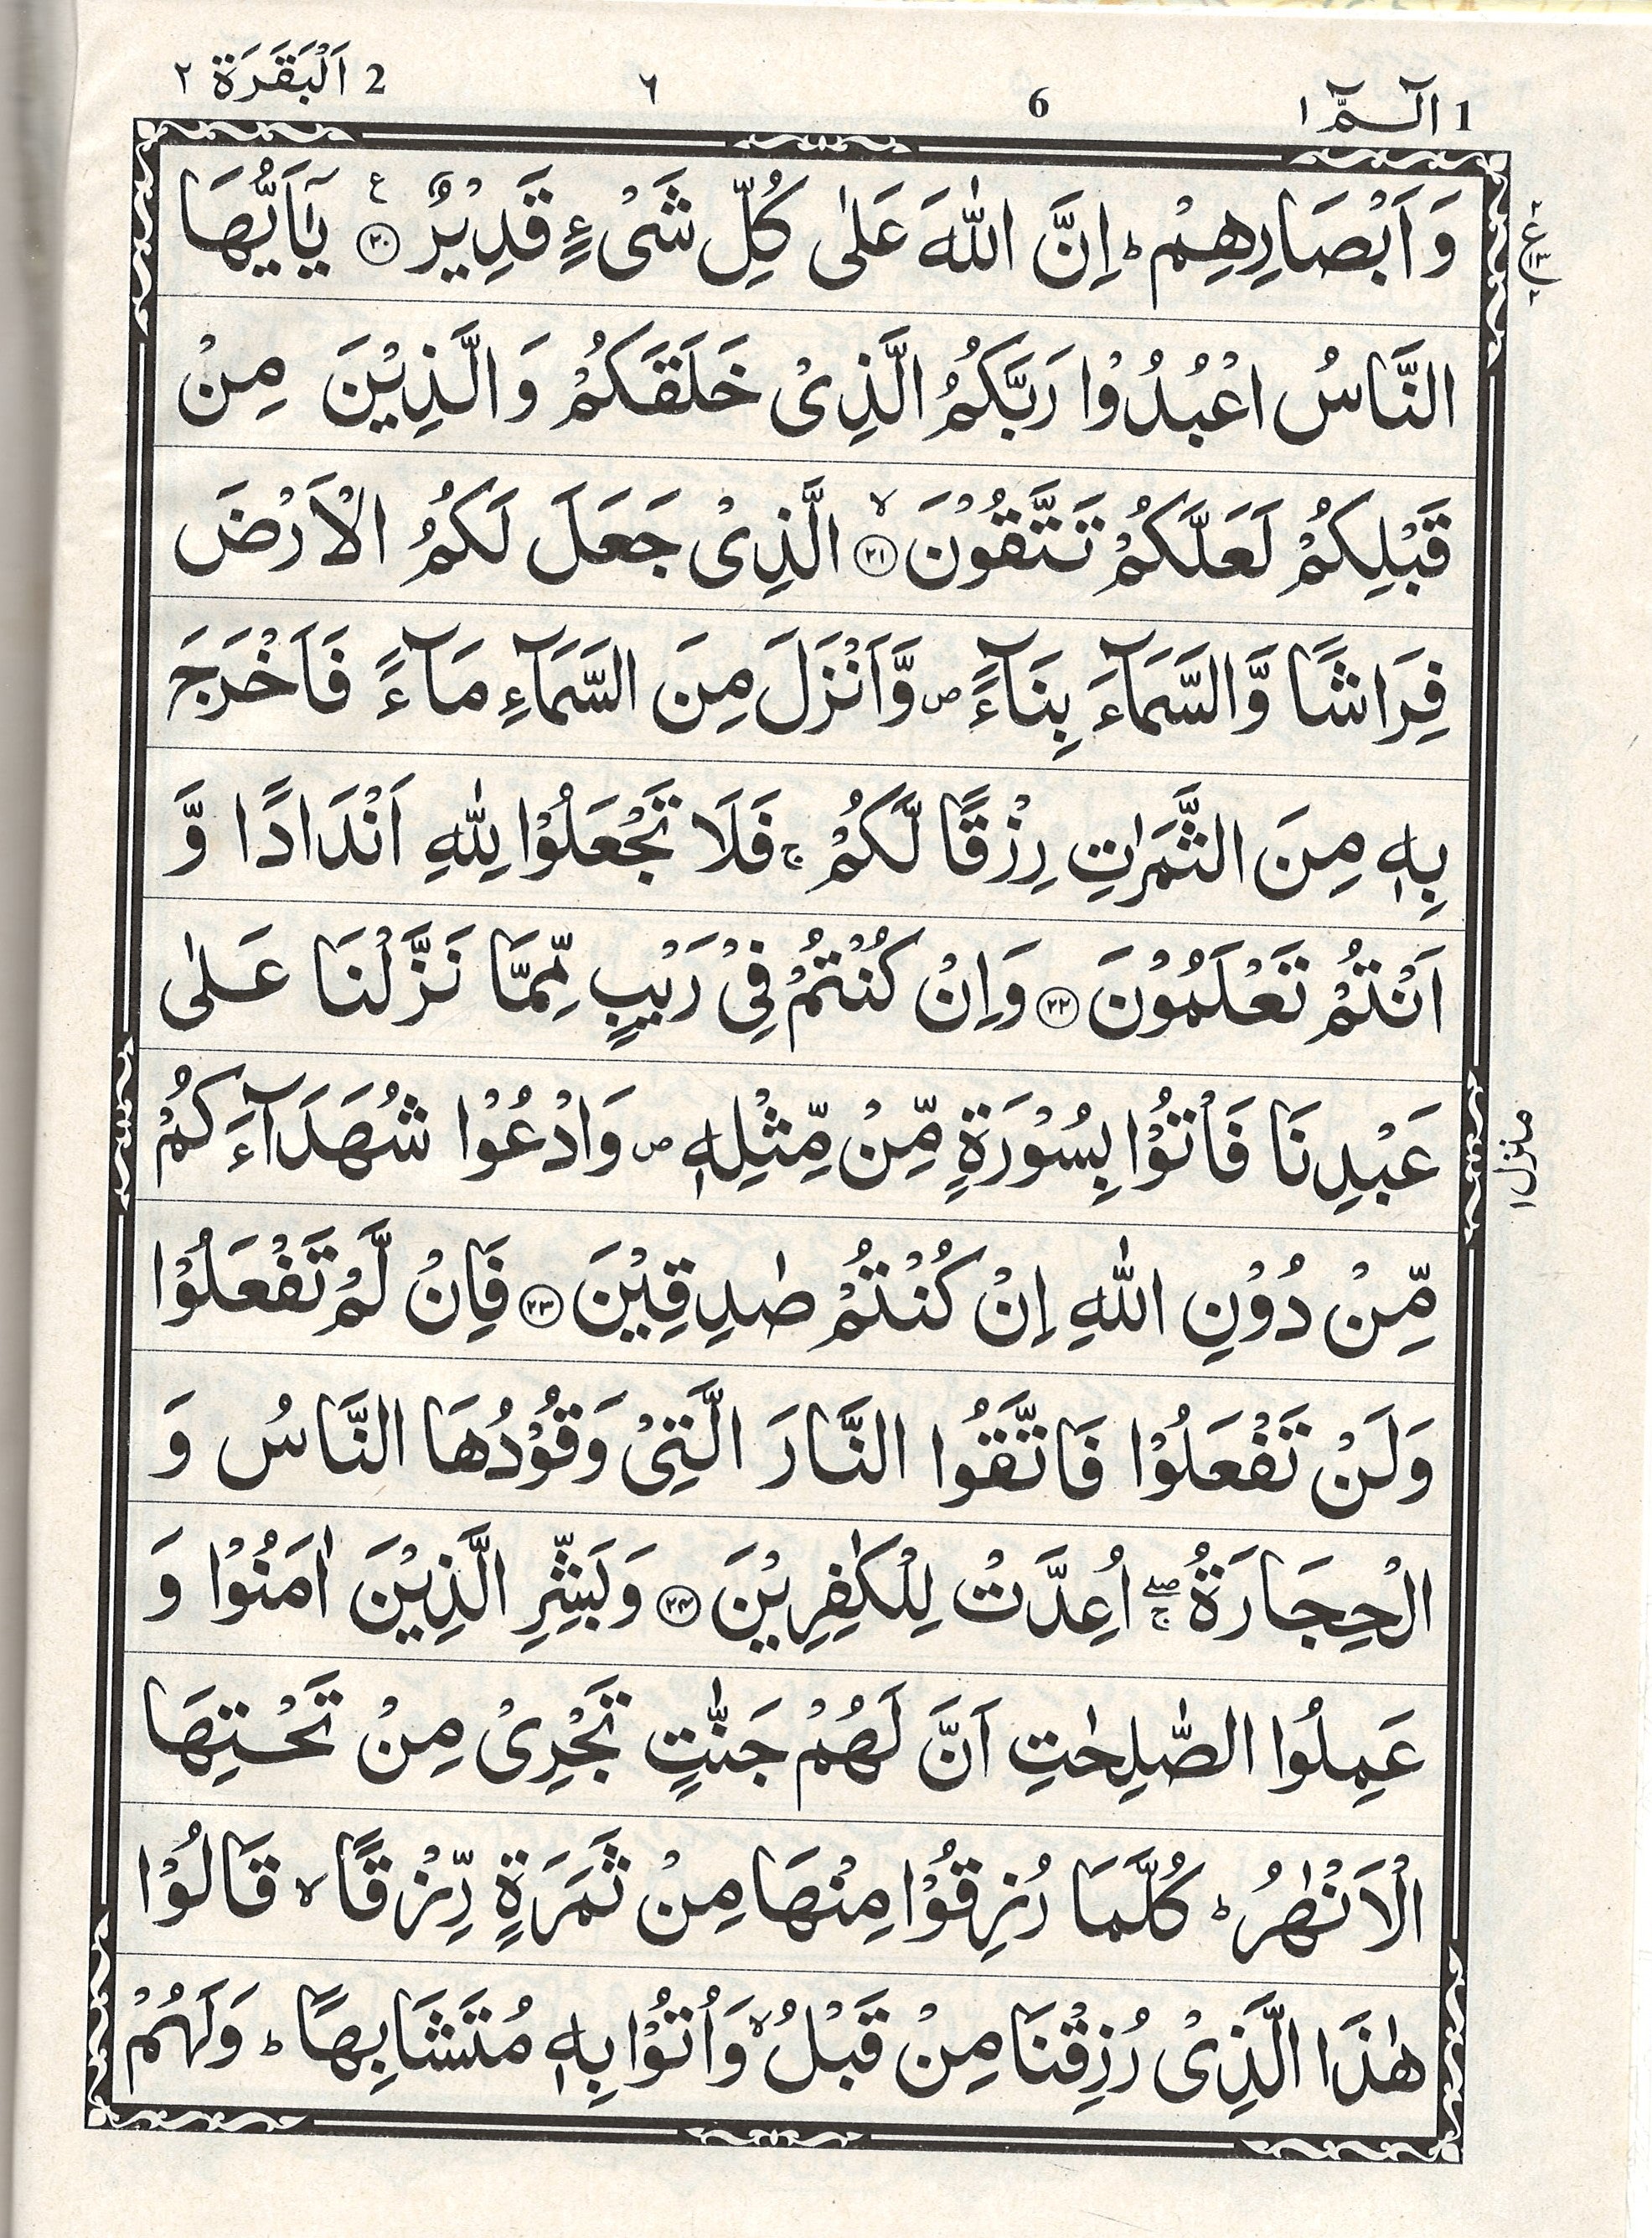 1 الٓـمّٓ ١ 6 ٦ 2 اَلْبَقَرَة ٢
وَاَبْصَارِهِمْ ؕ اِنَّ اللّٰهَ عَلٰى كُلِّ شَیْءٍ قَدِیْرٌ ﴿۲۰﴾ یٰۤاَیُّهَا
النَّاسُ اعْبُدُوْا رَبَّكُمُ الَّذِیْ خَلَقَكُمْ وَالَّذِیْنَ مِنْ
قَبْلِكُمْ لَعَلَّكُمْ تَتَّقُوْنَ ۙ﴿۲۱﴾ الَّذِیْ جَعَلَ لَكُمُ الْاَرْضَ
فِرَاشًا وَّالسَّمَآءَ بِنَآءً ۪ وَّاَنْزَلَ مِنَ السَّمَآءِ مَآءً فَاَخْرَجَ
بِهٖ مِنَ الثَّمَرٰتِ رِزْقًا لَّكُمْ ۚ فَلَا تَجْعَلُوْا لِلّٰهِ اَنْدَادًا وَّ
اَنْتُمْ تَعْلَمُوْنَ ﴿۲۲﴾ وَاِنْ كُنْتُمْ فِیْ رَیْبٍ مِّمَّا نَزَّلْنَا عَلٰى
عَبْدِنَا فَاْتُوْا بِسُوْرَةٍ مِّنْ مِّثْلِهٖ ۪ وَادْعُوْا شُهَدَآءَكُمْ
مِّنْ دُوْنِ اللّٰهِ اِنْ كُنْتُمْ صٰدِقِیْنَ ﴿۲۳﴾ فَاِنْ لَّمْ تَفْعَلُوْا
وَلَنْ تَفْعَلُوْا فَاتَّقُوا النَّارَ الَّتِیْ وَقُوْدُهَا النَّاسُ وَ
الْحِجَارَةُ ۖۚ اُعِدَّتْ لِلْكٰفِرِیْنَ ﴿۲۴﴾ وَبَشِّرِ الَّذِیْنَ اٰمَنُوْا وَ
عَمِلُوا الصّٰلِحٰتِ اَنَّ لَهُمْ جَنّٰتٍ تَجْرِیْ مِنْ تَحْتِهَا
الْاَنْهٰرُ ؕ كُلَّمَا رُزِقُوْا مِنْهَا مِنْ ثَمَرَةٍ رِّزْقًا ۙ قَالُوْا
هٰذَا الَّذِیْ رُزِقْنَا مِنْ قَبْلُ ۙ وَاُتُوْا بِهٖ مُتَشَابِهًا ؕ وَلَهُمْ
منزل ۱